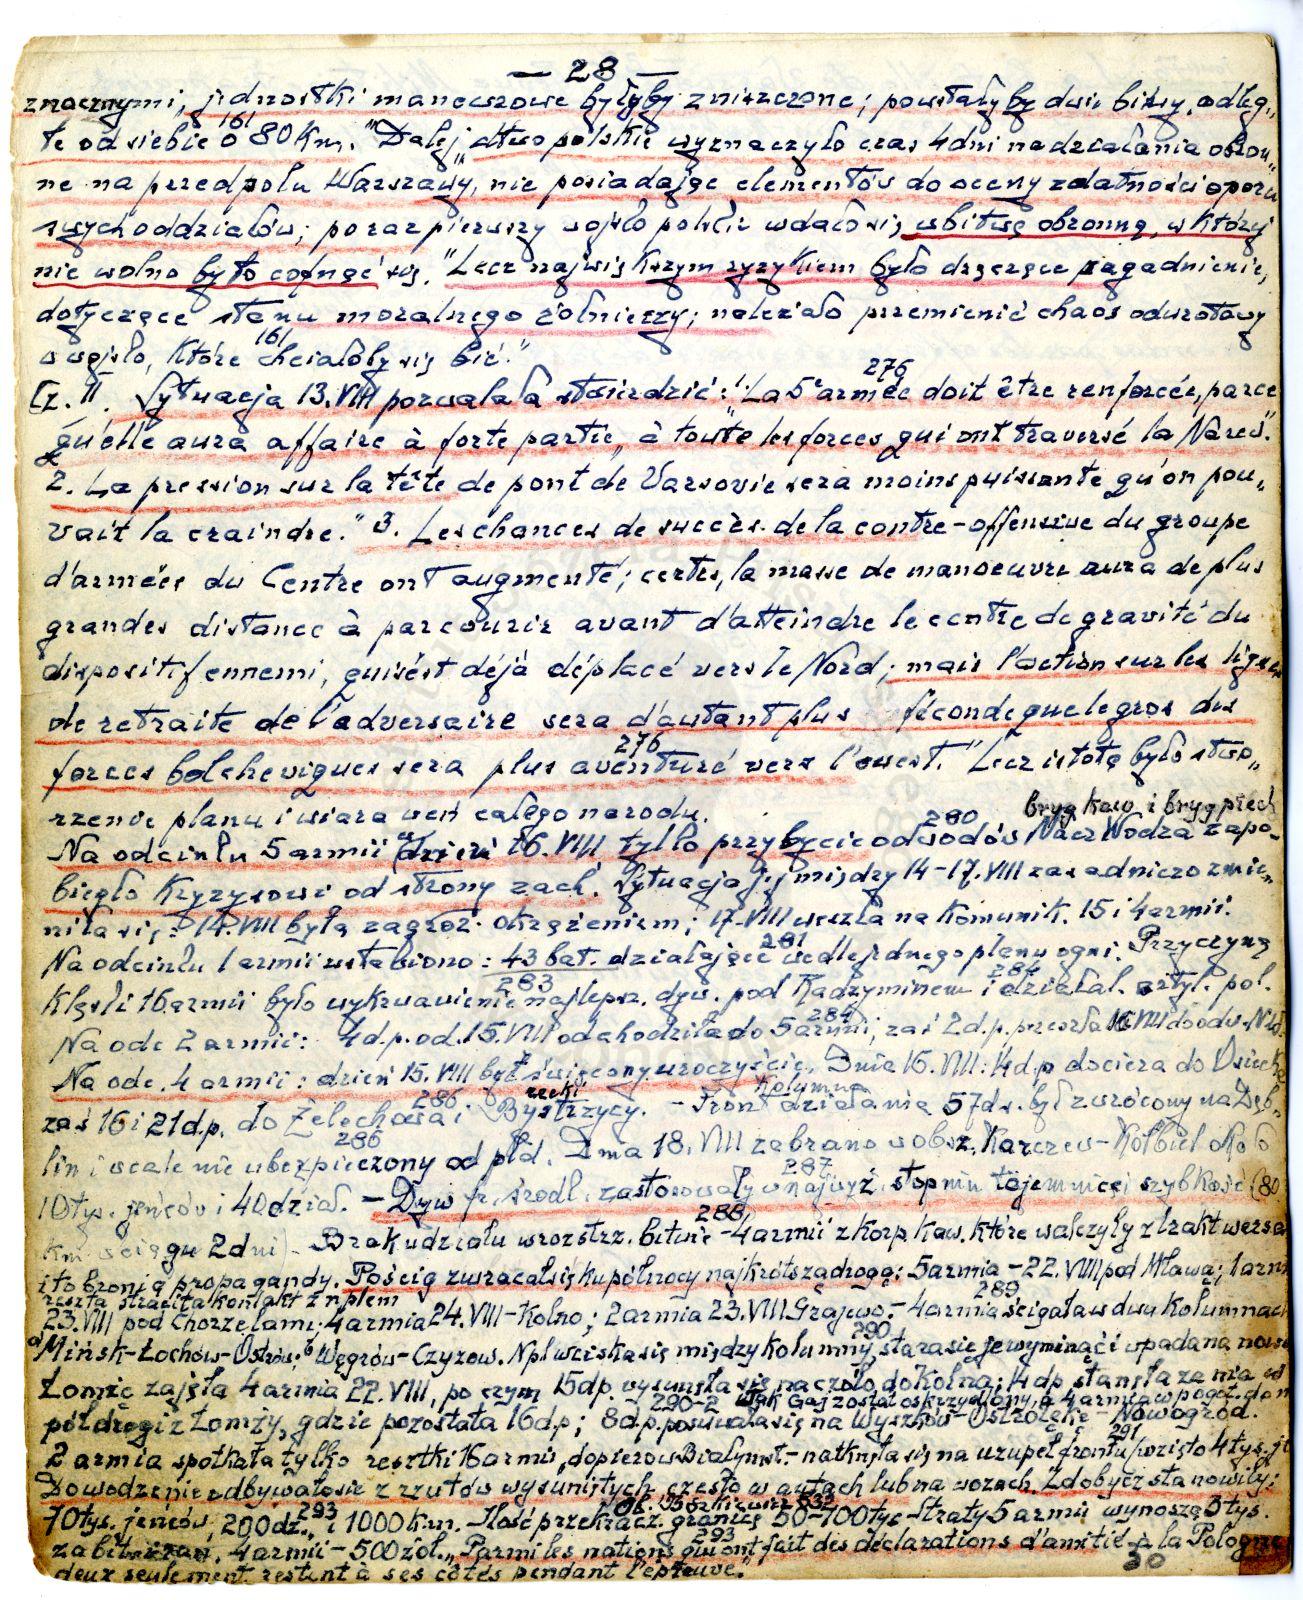 — 28 —
znacznymi; jednostki manewrowe byłyby zniszczone; powstałyby dwie bitwy, odleg„
łe od siebie o 80 km." 161 Dalej „dłwo polskie wyznaczyło czas 4 dni na działania obron„
ne na przedpolu Warszawy", nie posiadając elementów do oceny zdatności oporu
swych oddziałów; po raz pierwszy wojsko polskie wdało się w bitwę obronną, w której
nie wolno było cofnąć się. "Lecz największym ryzykiem było drżące zagadnienie,
dotyczące stanu moralnego żołnierzy; należało przemienić chaos odwrotowy
w wojsko, które chciałoby się bić." 161
Cz. II. Sytuacja 13.VIII pozwalała stwierdzić: 1. "La 5e armée doit être renforcée, parce 276
qu'elle aura affaire à forte partie, à toute les forces qui ont traversé la Narew".
2. La pression sur la tête de pont de Varsovie sera moins puissante qu'on pou„
vait la craindre." 3. Les chances de succès de la contre-offensive du groupe
d'armées du Centre ont augmenté; certes, la masse de manoeuvre aura de plus
grandes distance à parcourir avant d'atteindre le centre de gravité du
dispositif ennemi, qui s'est déjà déplacé vers le Nord; mais l'action sur les lignes
de retraite de l'adversaire sera d'autant plus féconde que le gros des
forces bolcheviques sera plus aventuré vers l'ouest." 276 Lecz istotą było stwo„
rzenie planu i wiara weń całego narodu.
Na odcinku 5 armii w dzień 16.VIII tylko przybycie odwodów Nacz Wodza 280 bryg kaw i bryg piech zapo-
biegło kryzysowi od strony zach. Sytuacja jej między 14–17.VIII zasadniczo zmie„
niła się: 14.VIII była zagroż. okrążeniem; 17.VIII weszła na komunik. 15 i 4 armii.
Na odcinku 1 armii ustabiono: 43 bat. działające wedle jednego planu ogni. 281 Przyczyną
klęski 16 armii było wykrwawienie najlepsz. dyw. pod Radzyminem i działal. artyl. pol. 283 284
Na odc 2 armii: 4 d.p. od 15.VIII odchodziła do 5 armii, zaś 2 d.p. przeszła 16 VIII do odw. NW. 284
Na odc. 4 armii: dzień 15.VIII był święcony uroczyście. Dnia 16.VIII: 14 d.p dociera do Osiecka
zaś 16 i 21 d.p. do Żelechowa i rzeki Bystrzycy. 286 – Front działania kolumna 57 ds. był zwrócony na Dęb„
lin i wcale nie ubezpieczony od płd. 286 Dnia 18.VIII zabrano w obsz. Karczew–Kołbiel około
10 tys. jeńców i 40 dział. – Dyw gr. środk. zastosowały w najwyż. stopniu tajemnicę i szybkość (80 287
km. w ciągu 2 dni) – Brak udziału w rozstrz. bitwie – 4 armii z korp. kaw, które walczyły z traktwersa 288
i to bronią propagandy. Pościg zwracał się ku północy najkrótszą drogą: 5 armia – 22.VIII pod Mławą; 1 arm
reszta straciła kontakt z nplem
23.VIII pod Chorzelami. 4 armia 24.VIII–Kolno; 2 armia 23.VIII Grajewo. – 4 armia ścigała w dwu kolumnach 289
a/ Mińsk–Łochów–Ostrów; b/ Węgrów–Czyżew. Npl wciska się między kolumny, stara się je wyminąć i wpada na nowe 290
Łomżę zajęła 4 armia 22.VIII, po czym 15 dp. wysunęła się na czoło do Kolna; 14 dp stanęła za nią w
290-2 tak Gaj został oskrzydlony, a 4 armia w pogoż. don
pół drogi z Łomży, gdzie pozostała 16 dp; 8 d.p. posuwała się na Wyszków–Ostrołękę–Nowogród.
2 armia spotkała tylko resztki 16 armii, dopiero w Białymst. – natknęła się na uzupeł frontu / wzięto 4 tys. je 291
Dowodzenie odbywało się z rzutów wysuniętych często w autach lub na wozach. Zdobycz stanowiły:
70 tys. jeńców, 200 dz. 293 i 1000 k.m. Ilość przekracz. granicę 50–100 tys – Straty 5 armii wynoszą 3 tys.
zabit i ran. 4 armii – 500 żoł. „Parmi les nations qui ont fait des déclarations d'amitié à la Pologne 293
deux seulement restent à ses côtés pendant l'épreuve."
30